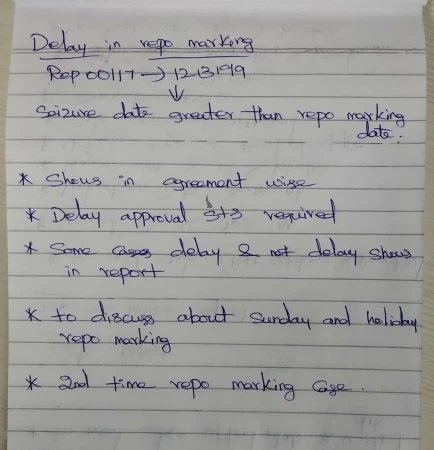 Delay in repo marking
Rep00117 → 1213199
↓
Seizure date greater than repo marking
date.
* Shows in agreement wise
* Delay approval required
* Some cases delay & not delay shows
in report
* to discuss about Sunday and holiday
repo marking
* 2nd time repo marking case.